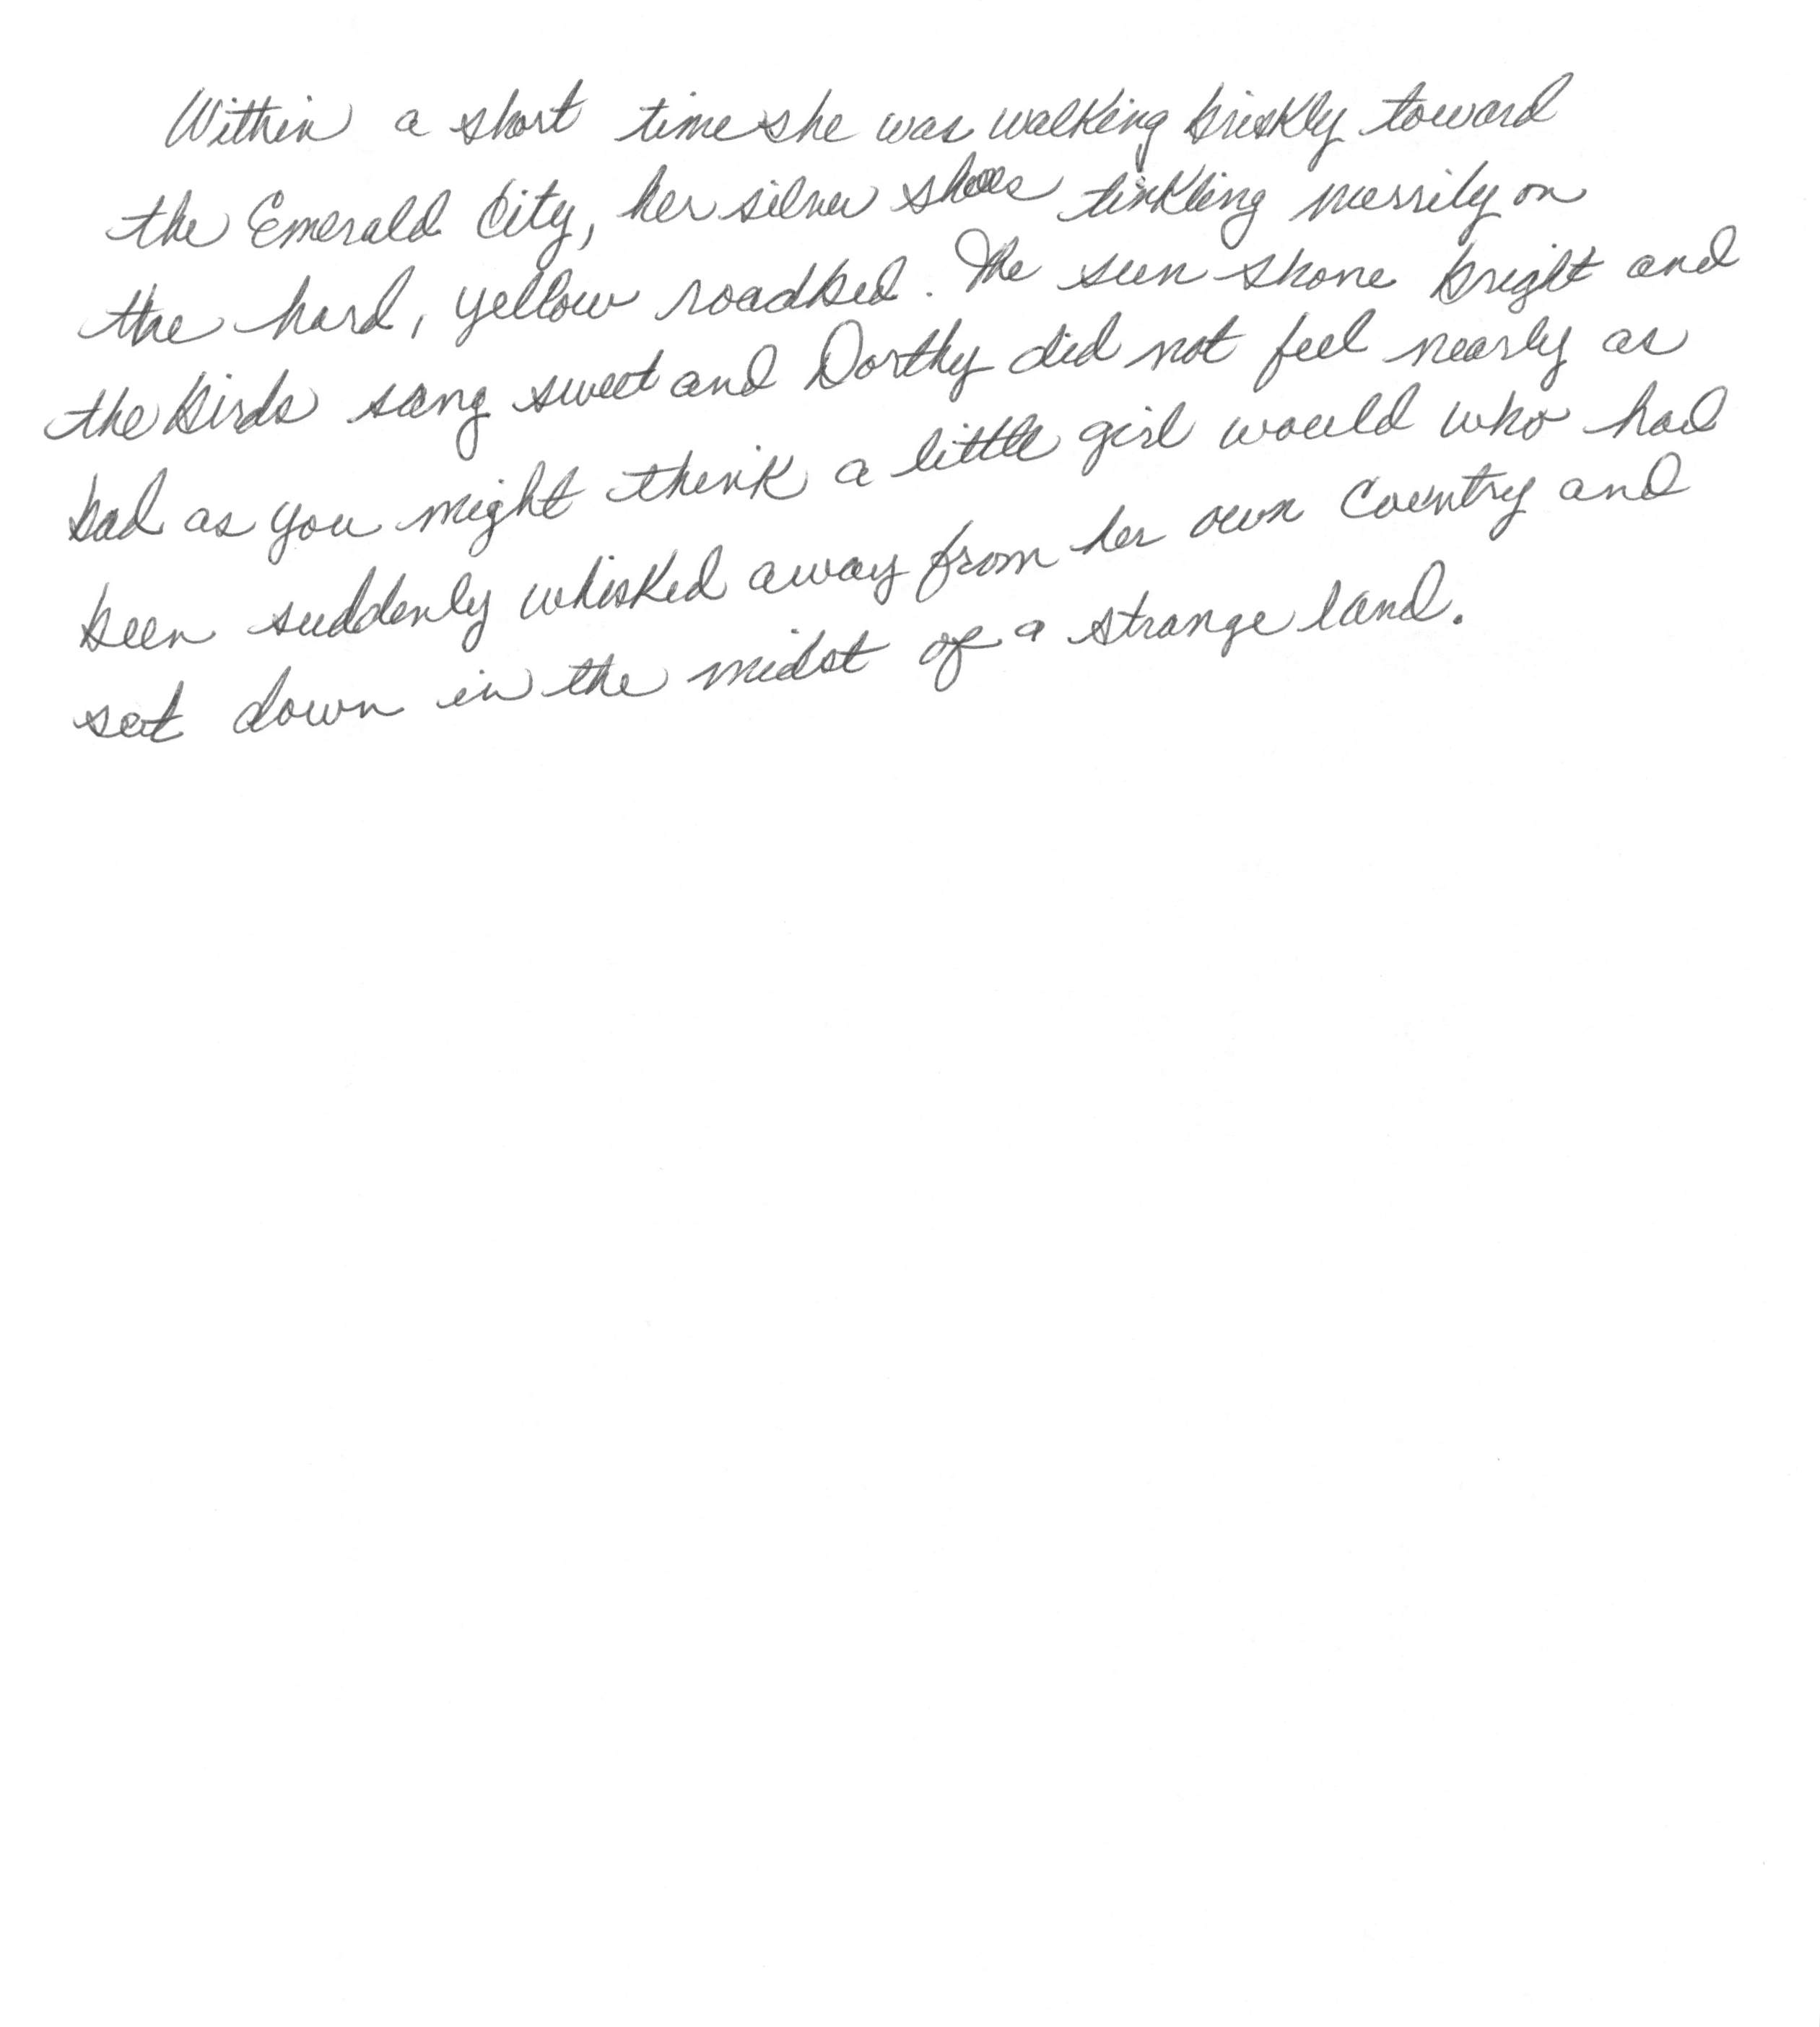 Within a short time she was walking briskly toward
the Emerald City, her silver shoes tinkling merrily on
the hard, yellow roadbed. The sun shone bright and
the birds sang sweet and Dorthy did not feel nearly as
bad as you might think a little girl would who had
been suddenly whisked away from her own country and
set down in the midst of a strange land.